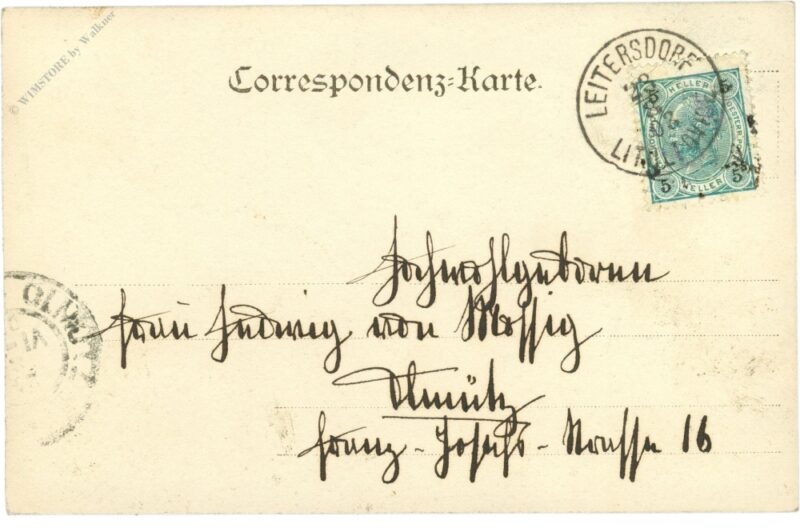 © WIMSTORE by Walkner
Correspondenz-Karte.
LEITERSDORF
HELLER
5 HELLER 5
Hochwohlgeboren
Frau Hedwig von Mossig
Olmütz
Franz-Josefs-Strasse 16